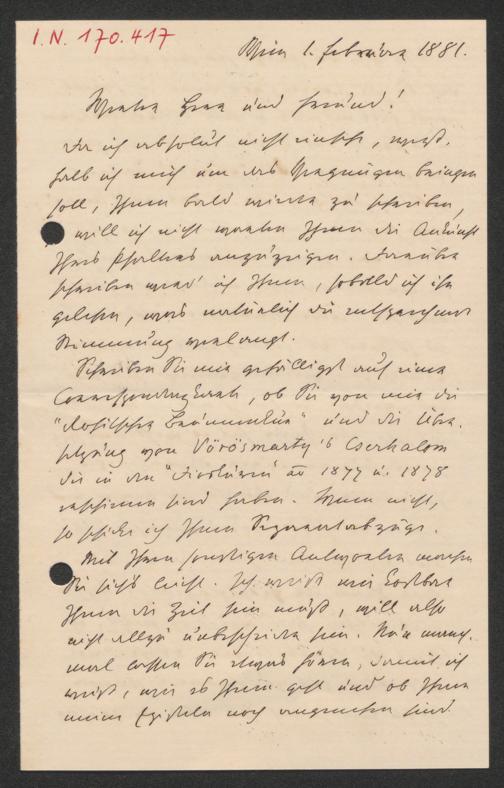 I.N. 170.417
Wien 1. Februar 1881.
Werter Herr und Freund!
Da ich absolut nicht einsehe, wes-
halb ich mich um das Vergnügen bringen
soll, Ihnen bald wieder zu schreiben,
will ich nicht warten Ihnen die Ankunft
Ihres anzuzeigen. Darüber
schreiben werd' ich Ihnen, sobald ich ihn
gelesen, was natürlich die entsprechende
Stimmung verlangt.
Schreiben Sie mir gefälligst auf einer
Correspondenzkarte, ob Sie von mir die
und die Über-
setzung von Vörösmarty's Cserhalom
die in den "Dioskuren" 1877 u. 1878
erschienen sind haben. Wenn nicht,
so schicke ich Ihnen Separatabzüge.
Mit Ihren sonstigen Antworten machen
Sie sich's leicht. Ich weiß wie kostbar
Ihnen die Zeit sein muß, will also
nicht allzu unbescheiden sein. Nur manch-
mal lassen Sie etwas hören, damit ich
weiß, wie es Ihnen geht und ob Ihnen
meine Episteln noch angenehm sind.